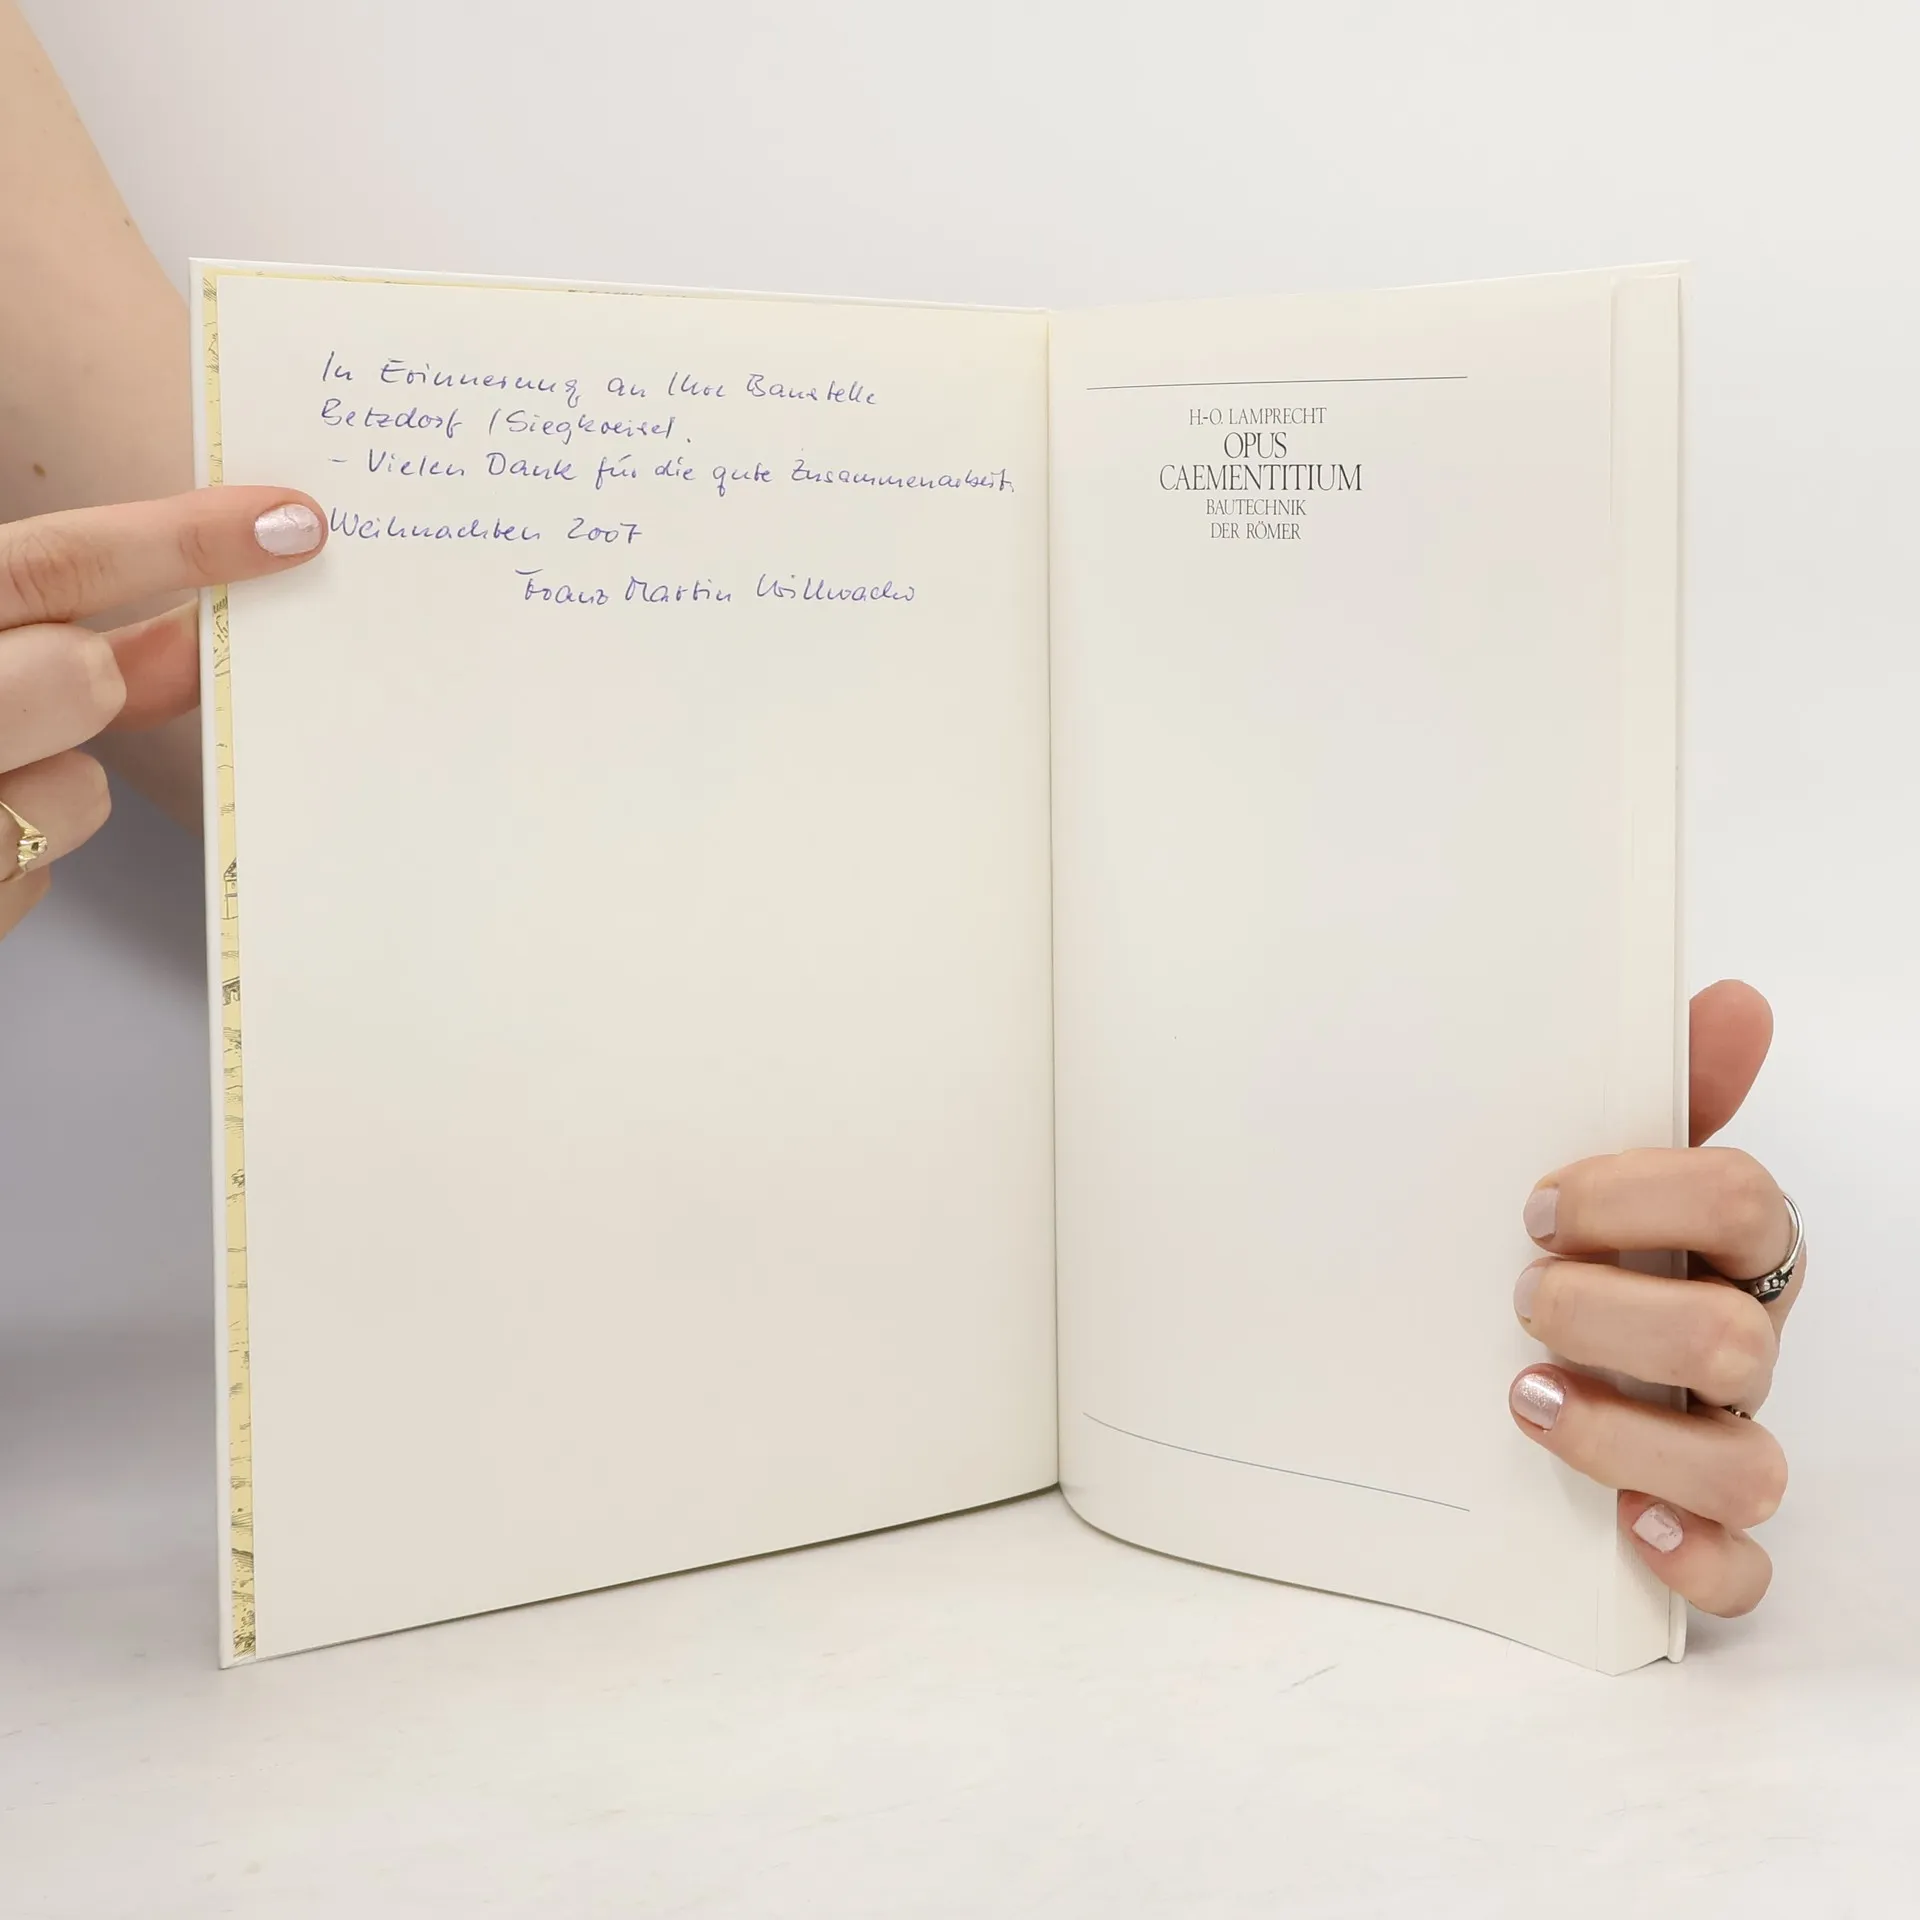 In Erinnerung an Ihre Baustelle
Betzdorf / Siegkreisel.
- Vielen Dank für die gute Zusammenarbeit.
Weihnachten 2007
Franz Martin
H.-O. LAMPRECHT
OPUS
CAEMENTITIUM
BAUTECHNIK
DER RÖMER